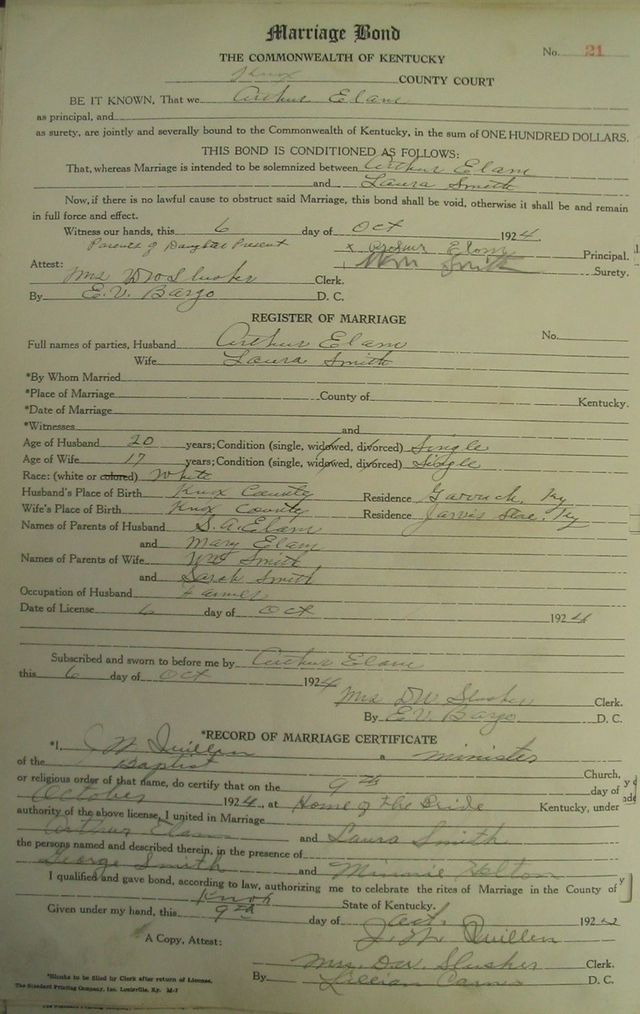 Marriage Bond
THE COMMONWEALTH OF KENTUCKY
No. 21
Knox COUNTY COURT
BE IT KNOWN, That we Arthur Elam
as principal, and
as surety, are jointly and severally bound to the Commonwealth of Kentucky, in the sum of ONE HUNDRED DOLLARS.
THIS BOND IS CONDITIONED AS FOLLOWS:
That, whereas Marriage is intended to be solemnized between Arthur Elam
and Laura Smith
Now, if there is no lawful cause to obstruct said Marriage, this bond shall be void, otherwise it shall be and remain
in full force and effect.
Witness our hands, this 6 day of Oct 1924.
Parents of Daughter Present x Elam Principal.
Attest: Wm Smith Surety.
Mrs DW Slusher Clerk.
By E.V. Bargo D. C.
REGISTER OF MARRIAGE
Full names of parties, Husband Arthur Elam No.
Wife Laura Smith
*By Whom Married
*Place of Marriage County of Kentucky.
*Date of Marriage
*Witnesses and
Age of Husband 20 years; Condition (single, widowed, divorced) Single
Age of Wife 17 years; Condition (single, widowed, divorced) Single
Race: (white or colored) White
Husband's Place of Birth Knox County Residence Ky
Wife's Place of Birth Knox County Residence Jarvis Store, Ky
Names of Parents of Husband S.A. Elam
and Mary Elam
Names of Parents of Wife Wm Smith
and Sarah Smith
Occupation of Husband Farmer
Date of License 6 day of Oct 1924
Subscribed and sworn to before me by Arthur Elam
this 6 day of Oct 1924
Mrs DW Slusher Clerk.
By E.V. Bargo D. C.
*RECORD OF MARRIAGE CERTIFICATE
*I, J W Quillen a minister
of the Baptist Church,
or religious order of that name, do certify that on the 9th day of
October 1924, at Home of the Bride Kentucky, under
authority of the above license, I united in Marriage
Arthur Elam and Laura Smith
the persons named and described therein, in the presence of
George Smith and Minnie Helton
I qualified and gave bond, according to law, authorizing me to celebrate the rites of Marriage in the County of
Knox State of Kentucky.
Given under my hand, this 9th day of Oct. 192
J. W. Quillen
A Copy, Attest:
Mrs. DW. Slusher Clerk.
By Lillian D. C.
*Blanks to be filled by Clerk after return of License.
The Standard Printing Company, Inc. Louisville, Ky. M-7